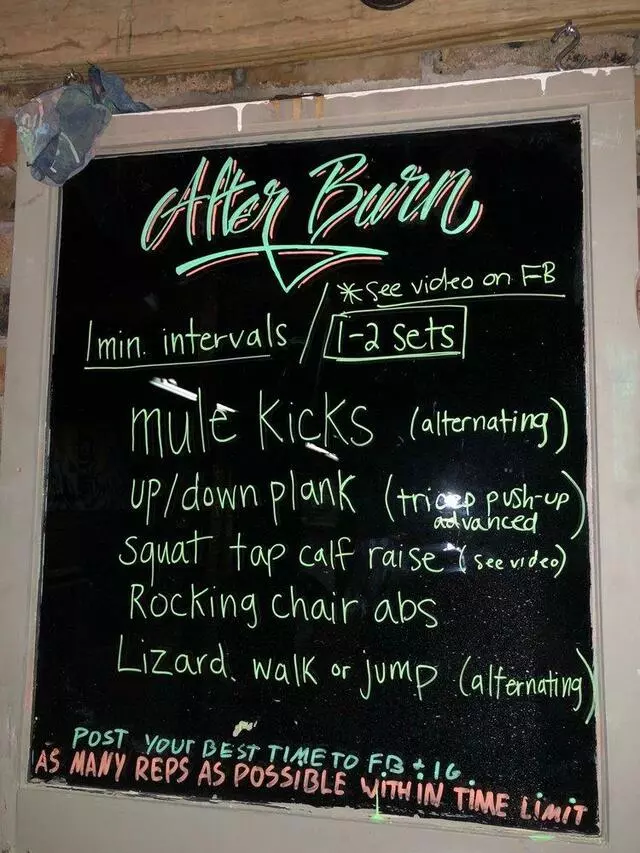 After Burn
*See video on FB
1 min. intervals / 1-2 sets
mule kicks (alternating)
up/down plank (tricep push-up
advanced)
squat tap calf raise (see video)
Rocking chair abs
Lizard walk or jump (alternating)
POST YOUR BEST TIME TO FB + IG
AS MANY REPS AS POSSIBLE WITHIN TIME LIMIT